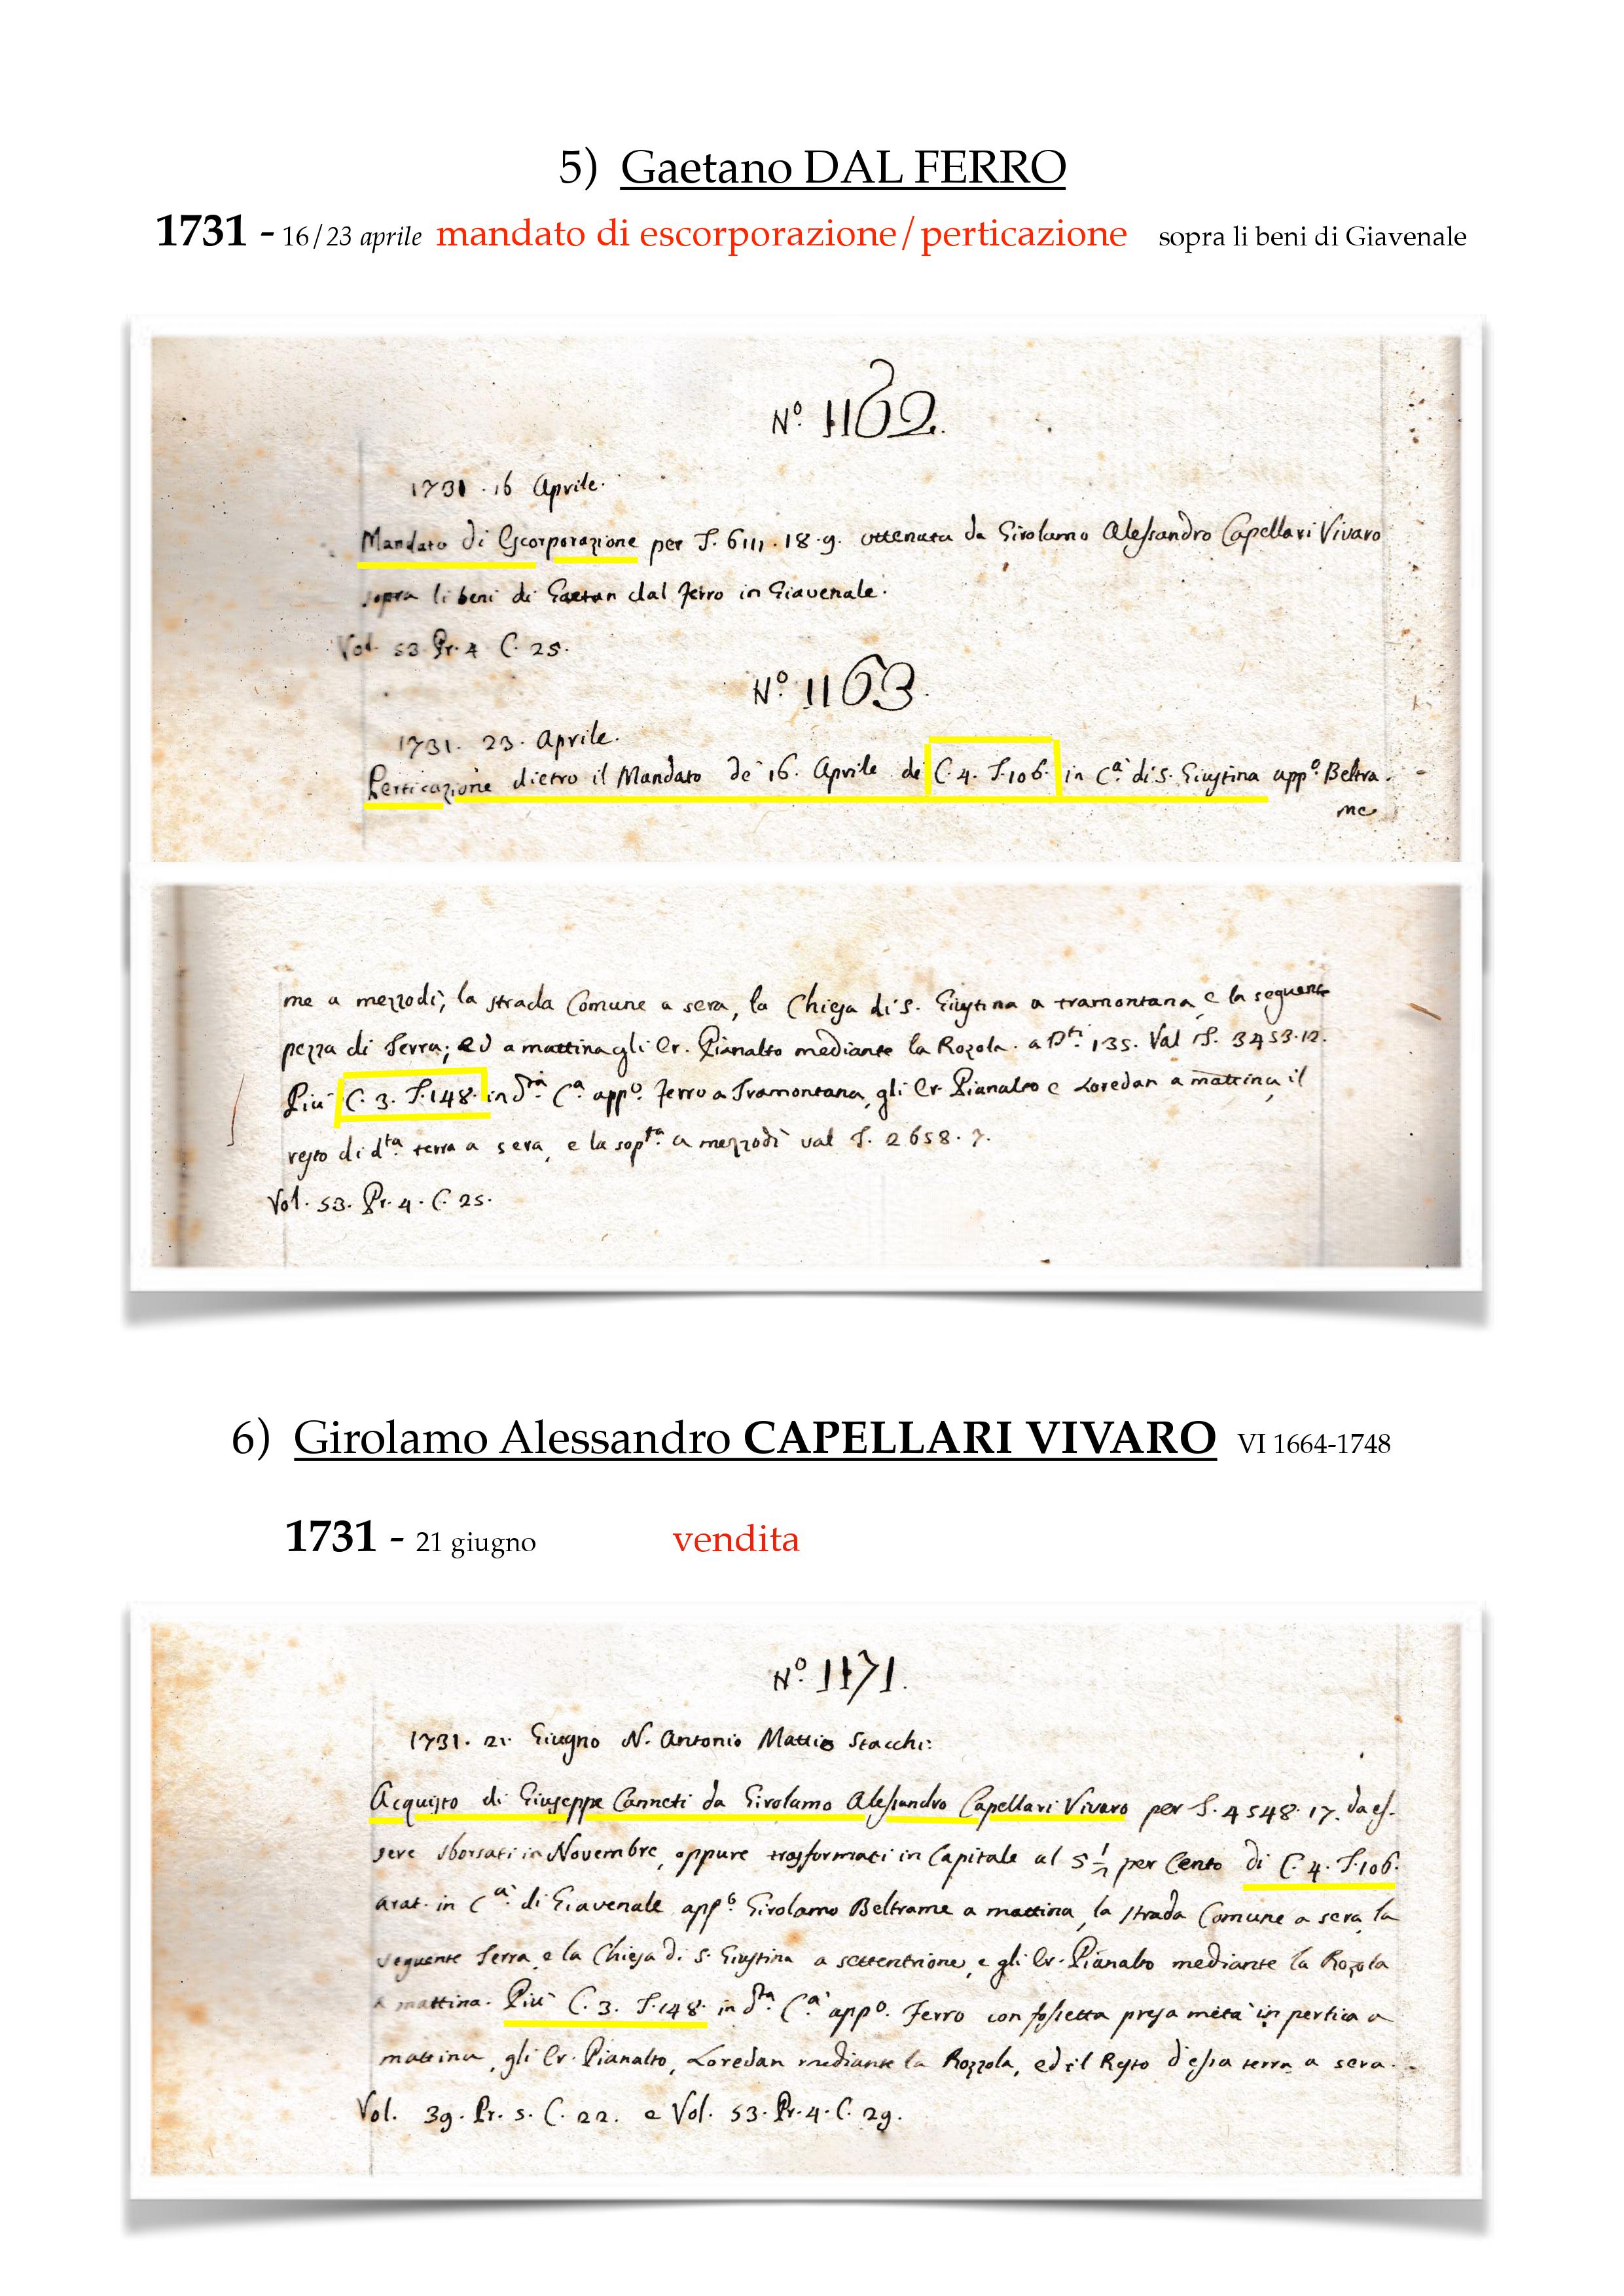 5) Gaetano DAL FERRO
1731 - 16/23 aprile mandato di escorporazione/perticazione sopra li beni di Giavenale
N.º 1162.
1731 . 16 Aprile.
Mandato di Escorporazione per T. 6111 . 18 . 9. ottenuta da Girolamo Alessandro Capellari Vivaro
sopra li beni di Gaetan dal Ferro in Giavenale.
Vol. 53. Pr. 4 C. 25.
N.º 1163.
1731. 23. Aprile.
Perticazione dietro il Mandato de' 16. Aprile de C. 4. T. 106. in C.ª di S. Giustina app.º Beltra-
me
me a mezzodì, la strada Comune a sera, la Chiesa di S. Giustina a tramontana, e la seguente
pezza di Terra; ed a mattina gli Cr. Pianalto mediante la Rozola. a D.ti 135. Val T. 3453.12.
Più C. 3. T. 148. in d.ta C.ª app.º Ferro a Tramontana, gli Cr Pianalto e Loredan a mattina, il
resto di d.ta terra a sera, e la sop.ta a mezzodì val T. 2658. 7.
Vol. 53. Pr. 4. C. 25.
6) Girolamo Alessandro CAPELLARI VIVARO VI 1664-1748
1731 - 21 giugno vendita
N.º 1171.
1731. 21. Giugno N. Antonio Mattio Stacchi:
Acquisto di Giuseppe Canneti da Girolamo Alessandro Capellari Vivaro per T. 4548. 17. da es-
sere sborsati in Novembre, oppure trasformati in Capitale al 5 1/2 per Cento di C. 4. T. 106.
arat. in C.ª di Giavenale app.º Girolamo Beltrame a mattina, la strada Comune a sera, la
seguente Terra, e la Chiesa di S. Giustina a settentrione, e gli Cr. Pianalto mediante la Rozola
a mattina. Più C. 3. T. 148. in d.ta C.ª app.º Ferro con fossetta presa metà in pertica a
mattina, gli Cr. Pianalto, Loredan mediante la Rozzola, ed il Resto d'essa terra a sera.
Vol. 39. Pr. 5. C. 22. e Vol. 53. Pr. 4. C. 29.